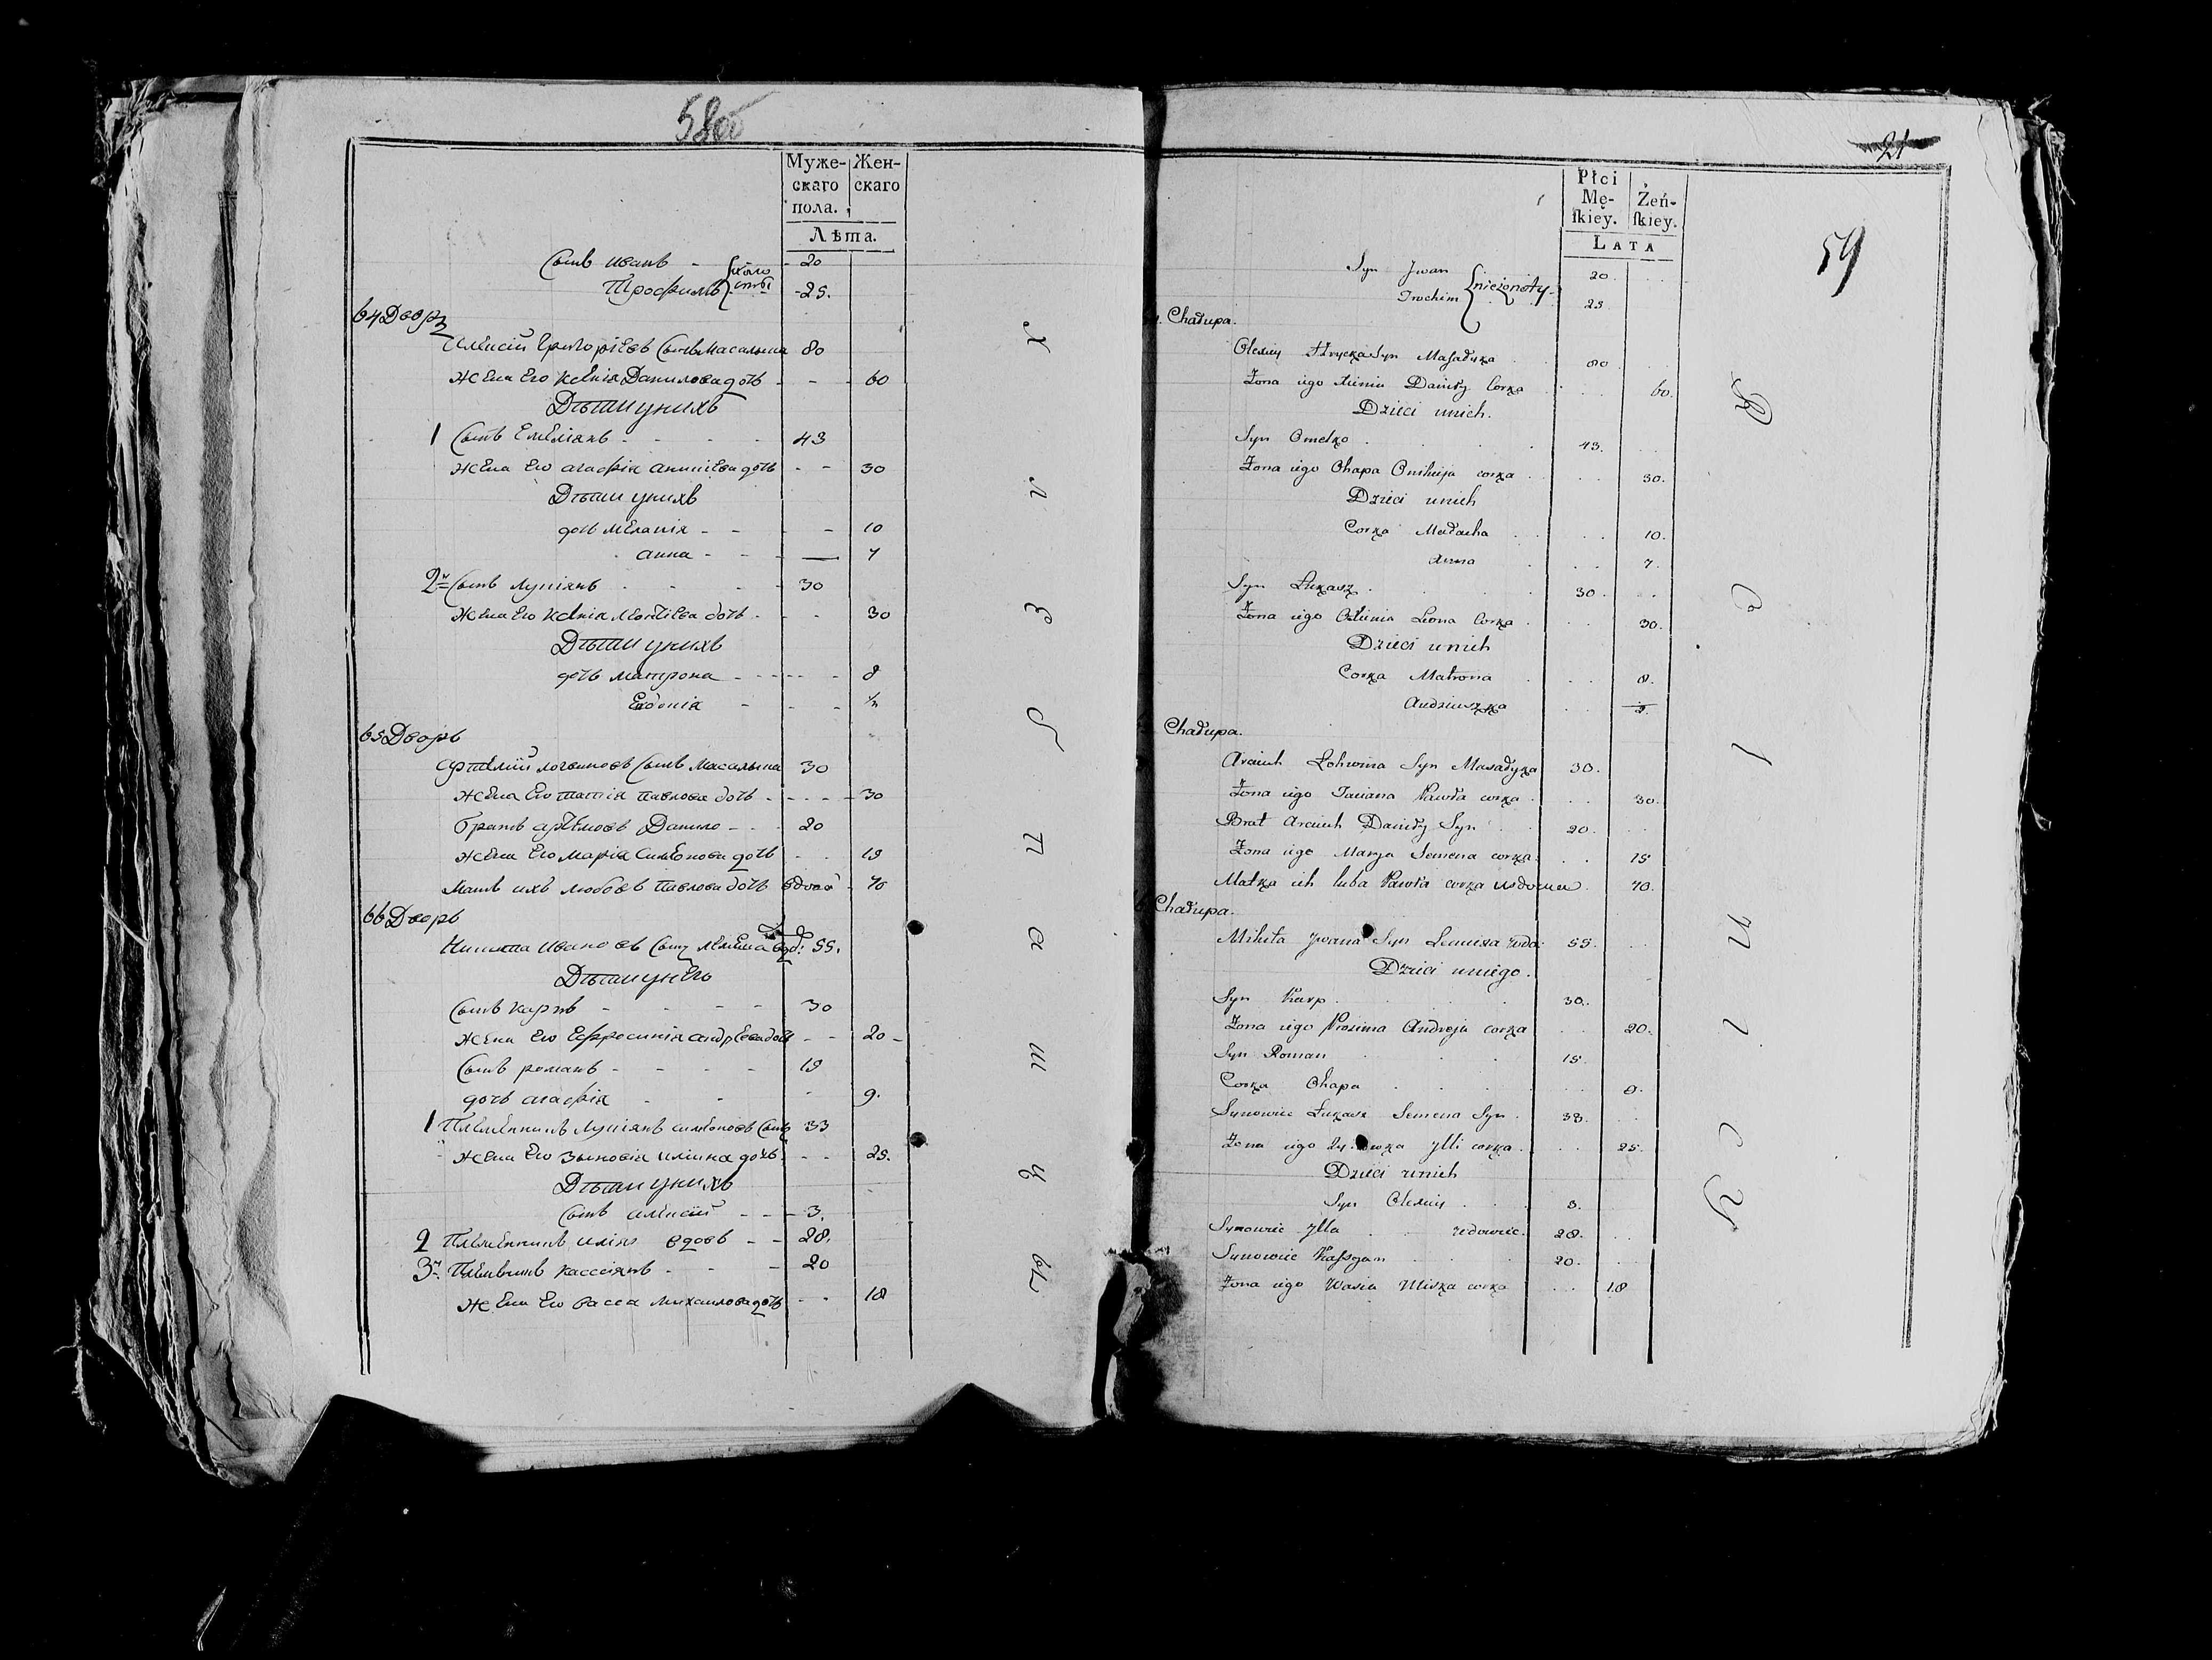 58об
Муже- Жен-
скаго скаго
пола.
Лѣта.
Сынъ иванъ - 20
Трофимъ - 25.
холо
сты
64 Дворъ
Алексій григоріевъ Сынъ Масалыка 80
жена его ксенія Данилова дочь - - 60
Дѣти у нихъ
1 Сынъ Емеліянъ - - - - 43
жена его агафія анисіева дочь - - 30
Дѣти у нихъ
дочь меланія - - - - 10
анна - - - 7
2й Сынъ лукіянъ - - - 30
жена его ксенія леонтіева дочь - - - 30
Дѣти у нихъ
дочь матрона - - - - - 8
Евдокія - - - ½
65 Дворъ
артемій логвиновъ Сынъ масалыка 30
жена его татіа павлова дочь - - - - 30
братъ артемовъ Данило - - 20
жена его марія симеонова дочь - - 19
мать ихъ любовь павлова дочь вдова - 70
66 Дворъ
Никита ивановъ Сынъ лемеша вдо: 55.
Дѣти у него
Сынъ карпъ - - - - 30
жена его Ефросинія андреева дочь - - 20 -
Сынъ романъ - - - - 19
дочь агафія - - - 9.
1 Племенникъ лукіянъ симеоновъ Сынъ 33
жена его зиновія иліина дочь - - 25.
Дѣти у нихъ
Сынъ алексій - - - 3.
2 Племенникъ иліа вдовъ - - 28.
3й Племенникъ кассіянъ - - - 20
жена его васса михаилова дочь - - 18
Х
л
е
б
п
а
ш
ц
ы
21
59
Płci
Mę- Żeń-
ſkiey. ſkiey.
LATA
Syn Jwan 20
Trochim 25
nieżonaty
Chałupa.
Olexiy Hrycka Syn Masałyka 80
Żona iego Xienia Daniły Corka 60.
Dzieci u nich.
Syn Omelko 43.
Żona iego Ohapa Onikieja corka 30.
Dzieci u nich
Corka Małacha 10.
Anna 7.
Syn Łukasz 30.
Żona iego Oxienia Leona Corka 30.
Dzieci u nich
Corka Matrona 8.
Audziuszka
Chałupa.
Arciuch Łohwina Syn Masałyka 30.
Żona iego Taciana Pawła corka 30.
Brat Arciuch Daniły Syn 20.
Żona iego Marya Semena corka 19
Matka ich luba Pawła corka wdowa 70.
Chałupa.
Mikita Jwana Syn Lemisza wdo: 55.
Dzieci u niego.
Syn Karp 30.
Żona iego Prosima Andreja corka 20.
Syn Roman 19.
Corka Ohapa 9.
Synowiec Łukasz Semena Syn 33.
Żona iego corka Jlli corka 25.
Dzieci u nich
Syn Olexiy 3.
Synowiec Jlla wdowiec. 28.
Synowiec Kaſsyan 20.
Żona iego Wasia Miska corka 18
R
o
l
n
i
c
y